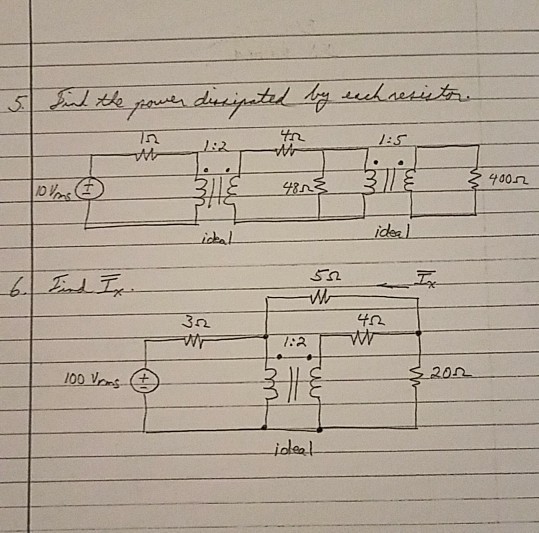 5. Find the power dissipated by each resistor.
1Ω 1:2 4Ω 1:5
10 Vrms 48Ω 400Ω
ideal ideal
6. Find Ix.
5Ω Ix
3Ω 1:2 4Ω
100 Vrms 20Ω
ideal